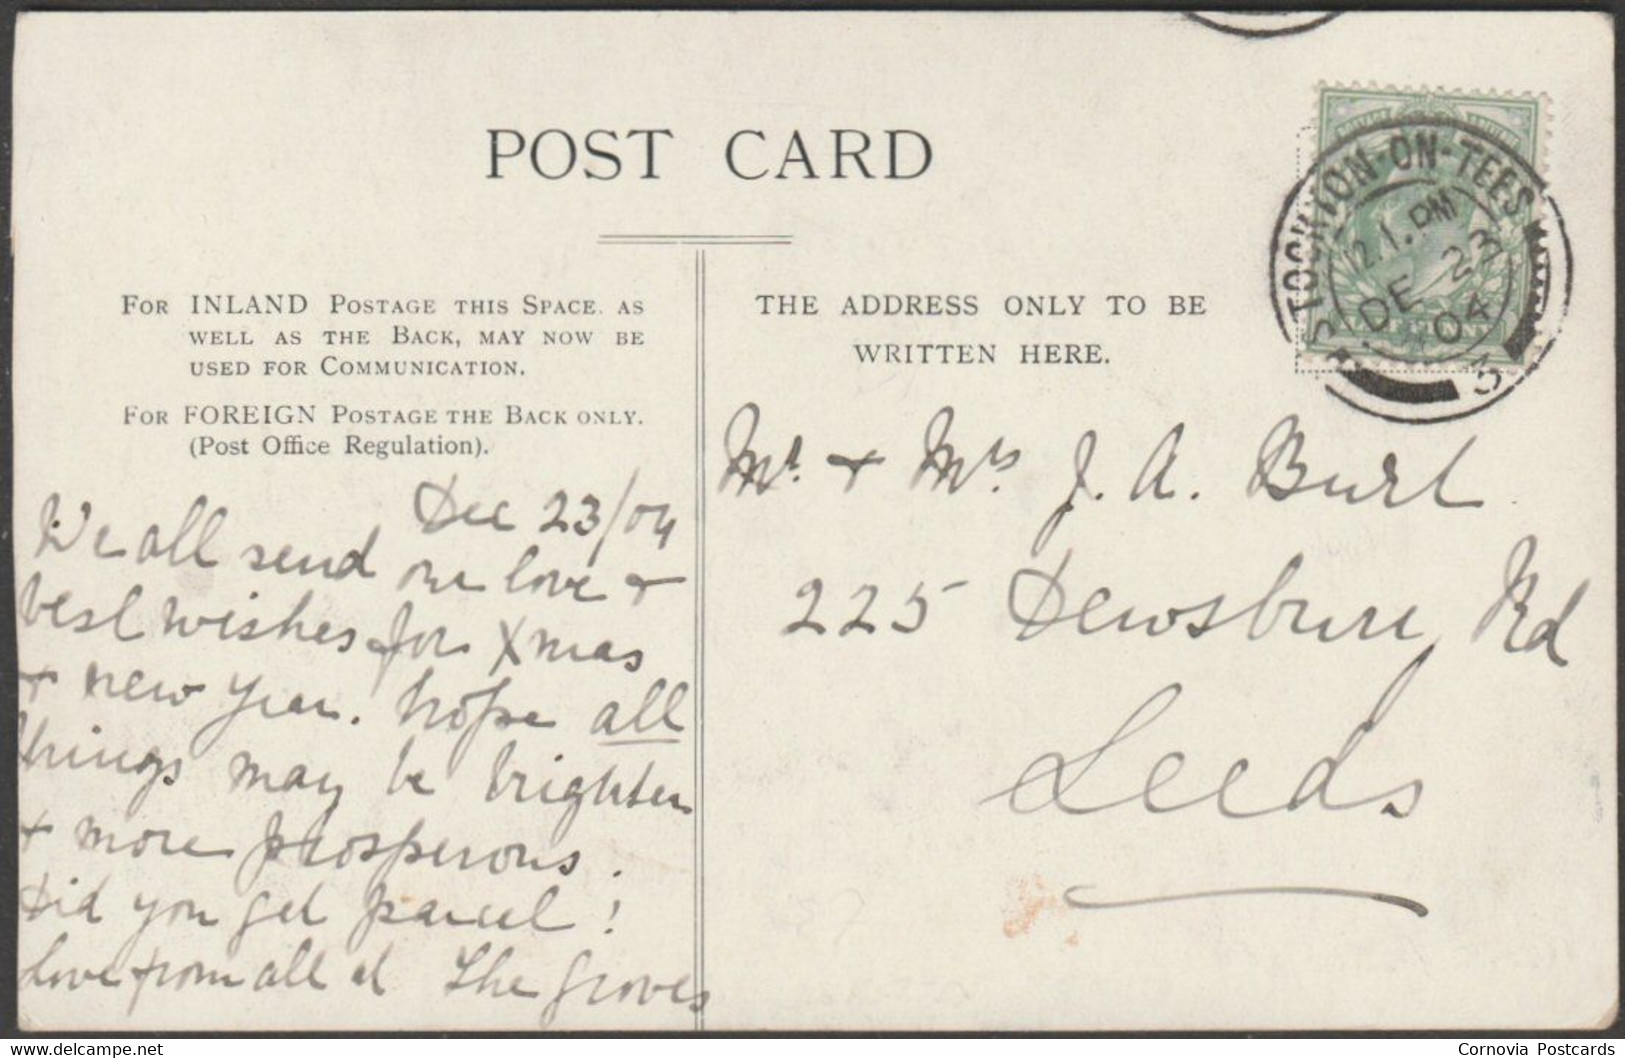 POST CARD
FOR INLAND POSTAGE THIS SPACE, AS
WELL AS THE BACK, MAY NOW BE
USED FOR COMMUNICATION.
FOR FOREIGN POSTAGE THE BACK ONLY.
(Post Office Regulation).
Dec 23/04
We all send our love +
best wishes for Xmas
+ new year. hope all
things may be brighter
+ more prosperous.
Did you get parcel!
Love from all at The Groves
THE ADDRESS ONLY TO BE
WRITTEN HERE.
STOCKTON-ON-TEES
12.1.PM
DE 23
04
3
Mr. + Mrs. J. A. Burl
225 Dewsbury Rd
Leeds
Cornovia Postcards